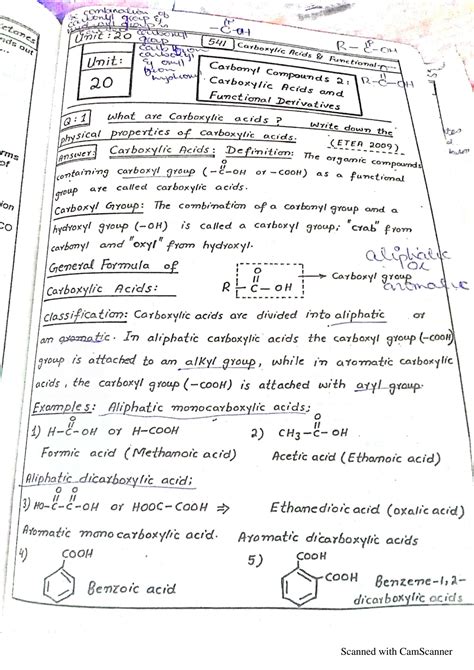 combination of
carbonyl group &
Unit: 20
541
Carboxylic Acids & Functional
R-C-OH
Unit:
20
Carbonyl Compounds 2:
Carboxylic Acids and
Functional Derivatives
R-C-OH
Q:1 What are Carboxylic acids? Write down the
physical properties of carboxylic acids. (ETEA 2009)
Answer: Carboxylic Acids: Definition: The organic compounds
containing carboxyl group (-C-OH or -COOH) as a functional
group are called carboxylic acids.
Carboxyl Group: The combination of a carbonyl group and a
hydroxyl group (-OH) is called a carboxyl group; "carb" from
carbonyl and "oxyl" from hydroxyl.
aliphatic
or
aromatic
General Formula of
Carboxylic Acids:
O
R - C - OH
Carboxyl group
Classification: Carboxylic acids are divided into aliphatic or
an aromatic. In aliphatic carboxylic acids the carboxyl group (-COOH)
group is attached to an alkyl group, while in aromatic carboxylic
acids, the carboxyl group (-COOH) is attached with aryl group.
Examples: Aliphatic monocarboxylic acids;
1) H-C-OH or H-COOH 2) CH3-C-OH
Formic acid (Methanoic acid) Acetic acid (Ethanoic acid)
Aliphatic dicarboxylic acid;
3) HO-C-C-OH or HOOC-COOH ⇒ Ethanedioic acid (oxalic acid)
Aromatic monocarboxylic acid. Aromatic dicarboxylic acids
4) COOH 5) COOH
Benzoic acid COOH Benzene-1,2-
dicarboxylic acids
Scanned with CamScanner